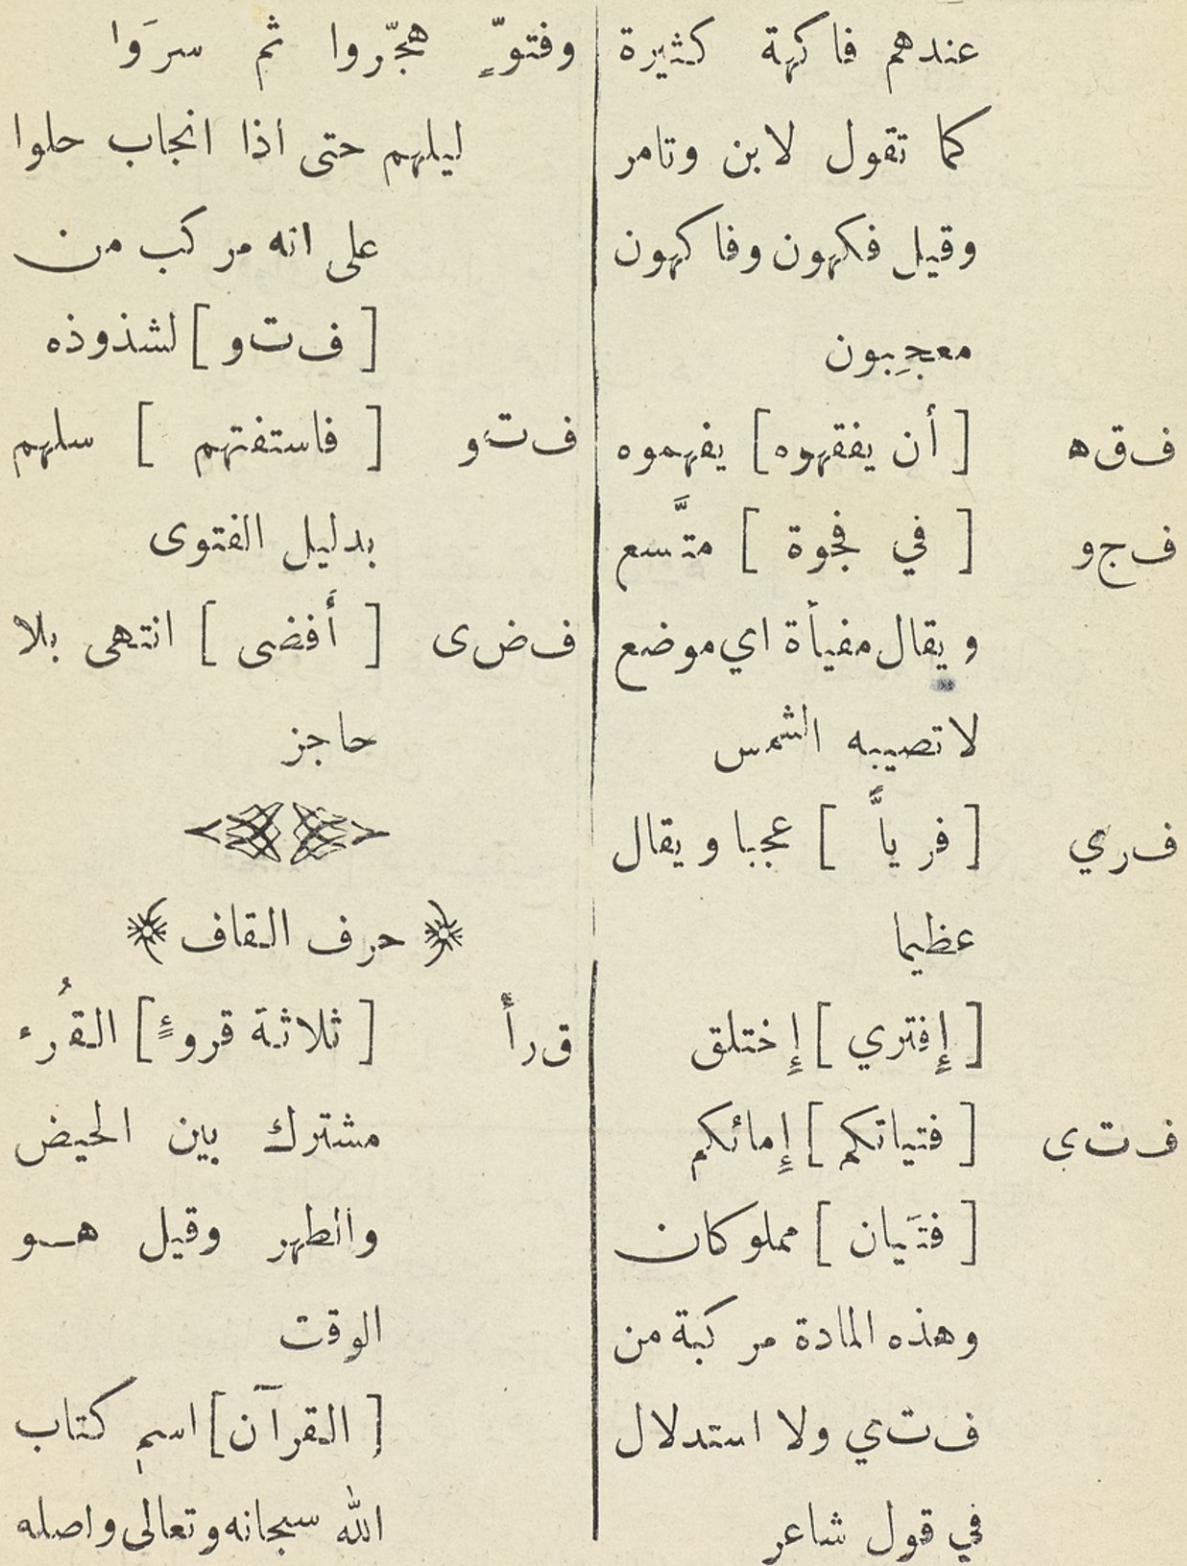 عندهم فاكهة كثيرة
كما تقول لابن وتامر
وقيل فكهون وفاكهون
معجِبون
ف ق ه [أن يفقهوه] يفهموه
ف ج و [في فجوة] متَّسع
ويقال مفيأة اي موضع
لا تصيبه الشمس
ف ر ي [فرياًّ] عجبا ويقال
عظيما
[إِفتري] إِختلق
ف ت ى [فتياتكم] إِمائكم
[فتَيان] مملوكان
وهذه المادة مركبة من
ف ت ي ولا استدلال
في قول شاعر
وفتوٍّ هجّروا ثم سرَوا
ليلهم حتى اذا انجاب حلوا
على انه مركب من
[ف ت و] لشذوذه
ف ت و [فاستفتهم] سلهم
بدليل الفتوى
ف ض ى [أَفضى] انتهى بلا
حاجز
﴿حرف القاف﴾
ق ر أ [ثلاثة قروءٍ] القُرء
مشترك بين الحيض
والطهر وقيل هــو
الوقت
[القرآن] اسم كتاب
الله سبحانه وتعالى واصله